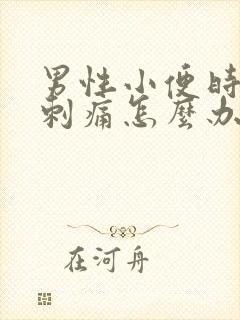 男性小便时
刺痛怎麽办
在河舟